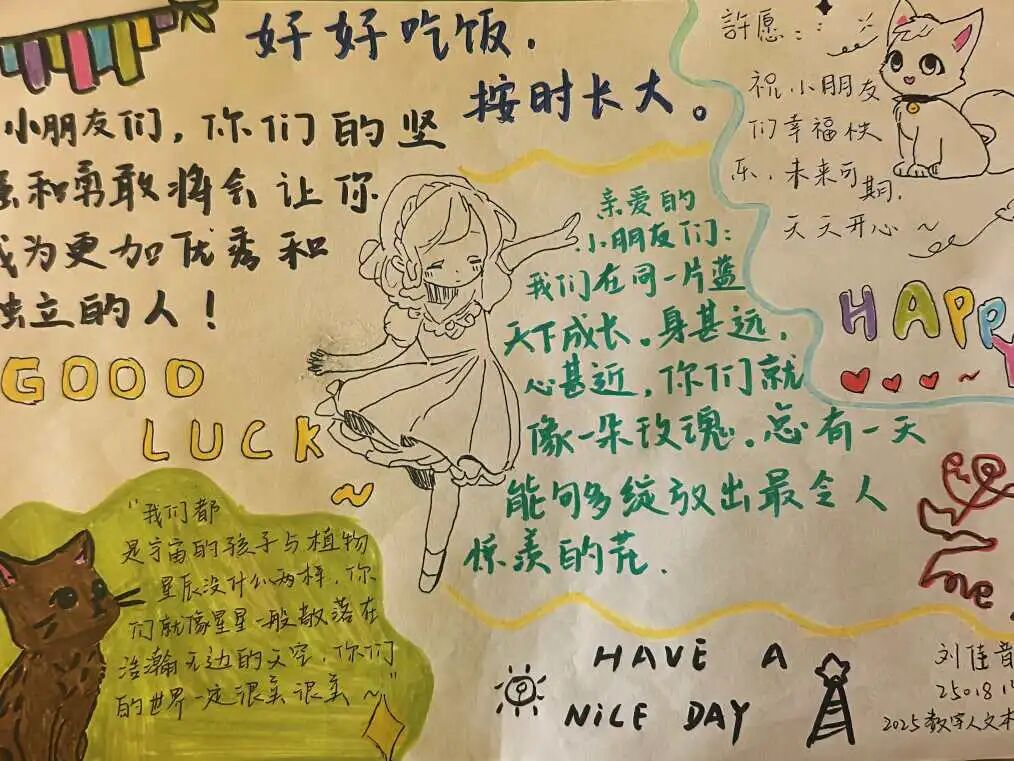 好好吃饭.
按时长大。
小朋友们,你们的坚
强和勇敢将会让你
成为更加优秀和
独立的人!
GOOD
LUCK
~
許愿::
祝小朋友
们幸福快
乐,未来可
期,
天天开心~
HAPPY
~
亲爱的
小朋友们:
我们在同一片蓝
天下成长。身甚远,
心甚近,你们就
像一朵玫瑰。总有一天
能够多绽放出最令人
惊羡的花.
"我们都
是宇宙的孩子与植物
星辰没什么两样,你
们就像星星一般散落在
浩瀚无边的天空,你们
的世界一定很美很美~"
HAVE A
NiCE DAY
love
刘佳音
25018
2025数字人文本